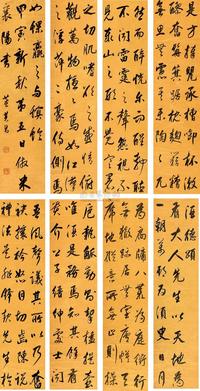 有大人先生以天地為
一朝萬期為須臾日月
為扃牖八荒為庭衢行
無轍迹居無室廬幕天
席地縱意所如止則操
卮執觚動則挈榼提壺
唯酒是務焉知其餘有
貴介公子縉紳處士聞
吾風聲議其所以乃奮
袂攘襟怒目切齒陳說
禮法是非鋒起先生於
是方捧甖承槽銜杯漱
醪奮髯踑踞枕麴藉糟
無思無慮其樂陶陶兀
然而醉恍爾而醒靜聽
不聞雷霆之聲熟視不
之切肌嗜慾之感情俯
觀萬物擾擾焉如江漢
之載浮萍二豪侍側焉
如蜾蠃之與螟蛉
甲寅新秋五日仿米
襄陽書 董其昌